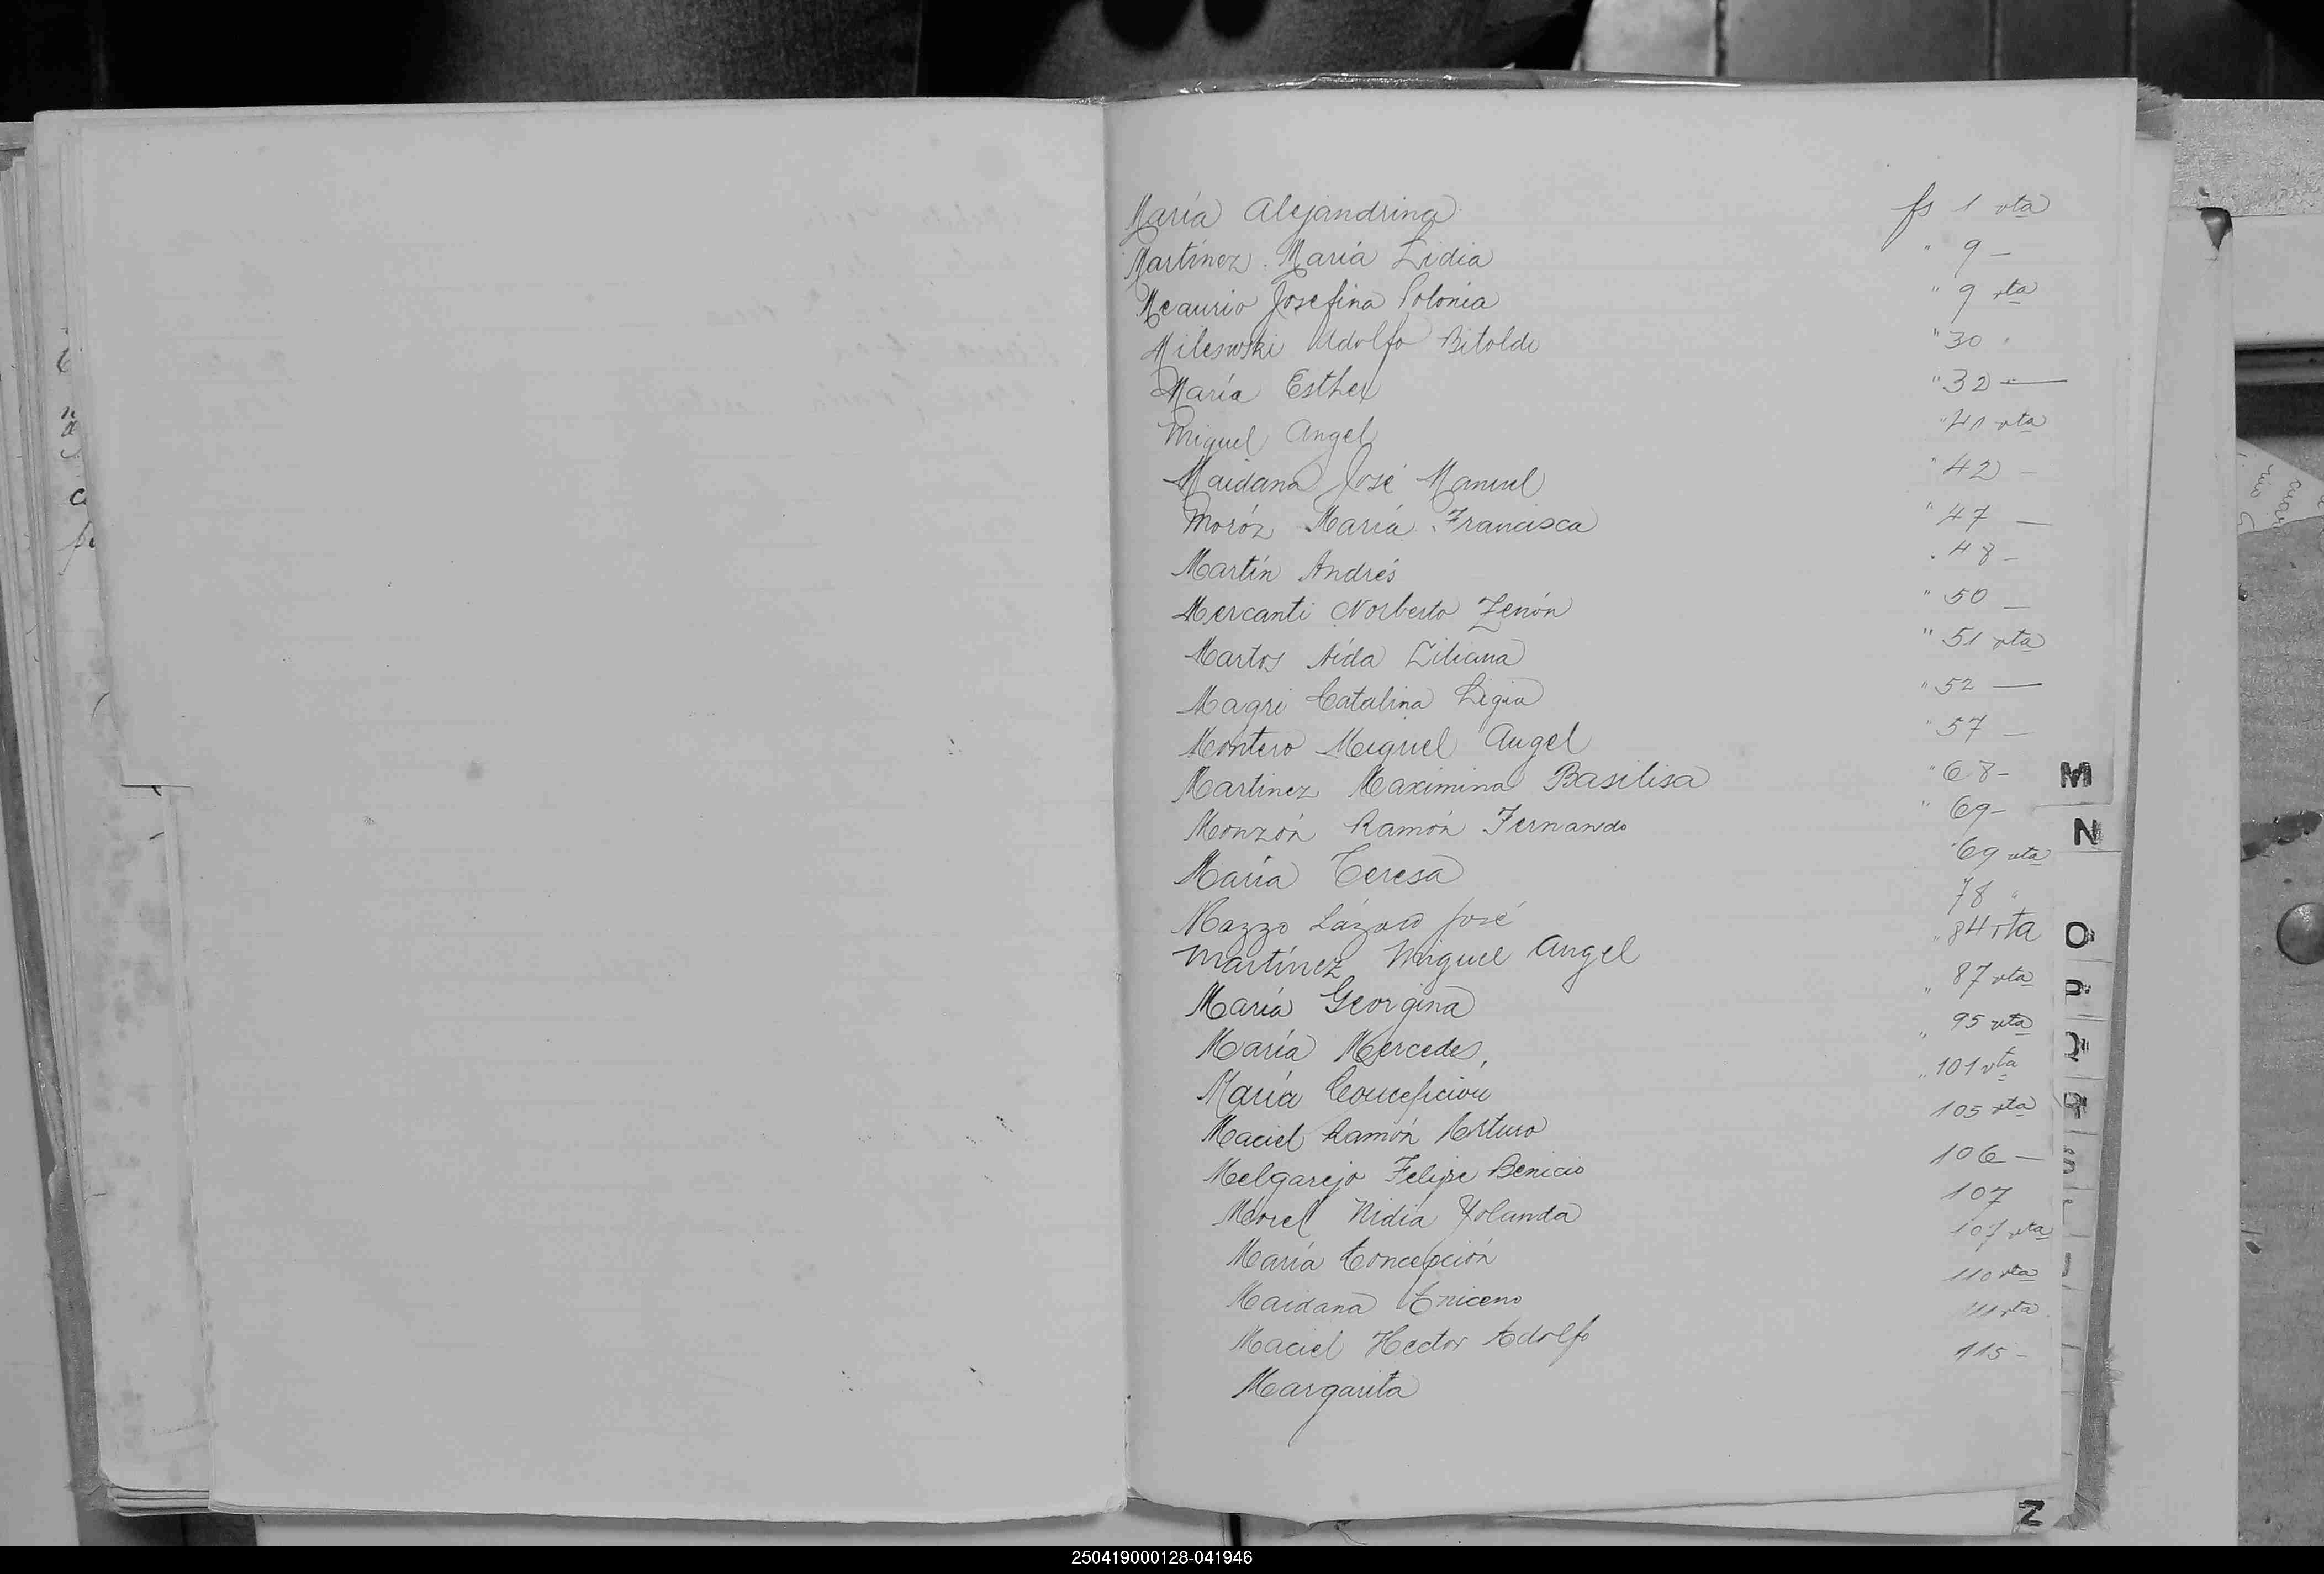 María Alejandrina fs 1 vta
Martínez María Lidia " 9 —
Meaurio Josefina Polonia " 9 vta
Milewski Adolfo Bitoldi " 30 "
María Esther " 32 —
Miguel Angel " 41 vta
Maidana José Manuel " 42 —
Moróz María Francisca " 47 —
Martín Andrés " 48 —
Mercanti Norberto Zenón " 50 —
Martos Aída Liliana " 51 vta
Magri Catalina Ligia " 52 —
Montero Miguel Angel " 57 —
Martinez Maximina Basilisa " 68 —
Monzón Ramón Fernando " 69 —
María Teresa " 69 vta
Mazzo Lázaro José 78 "
Martínez Miguel Angel " 84 vta
María Georgina " 87 vta
María Mercedes, " 95 vta
María Concepción " 101 vta
Maciel Ramón Arturo 105 vta
Melgarejo Felipe Benicio 106 —
Morel Nidia Yolanda 107
María Concepción 107 vta
Maidana 110 vta
Maciel Hector Adolfo 111 vta
Margarita 115 —
M
N
O
P
Q
R
S
Z
250419000128-041946